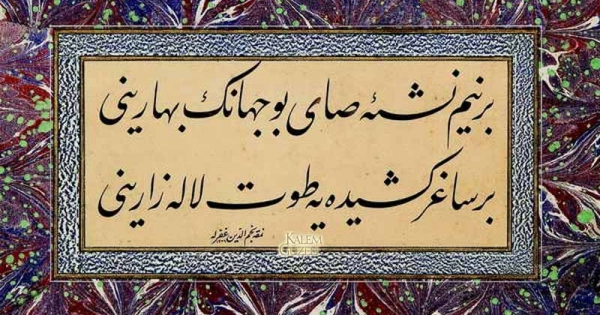 بر نیم نشئه صای بو جهانك بهارینی
بر ساغر کشیده یه طوت لاله زارینی
نمقه نجم الدین غفر له
KALEM
GÜZELİ